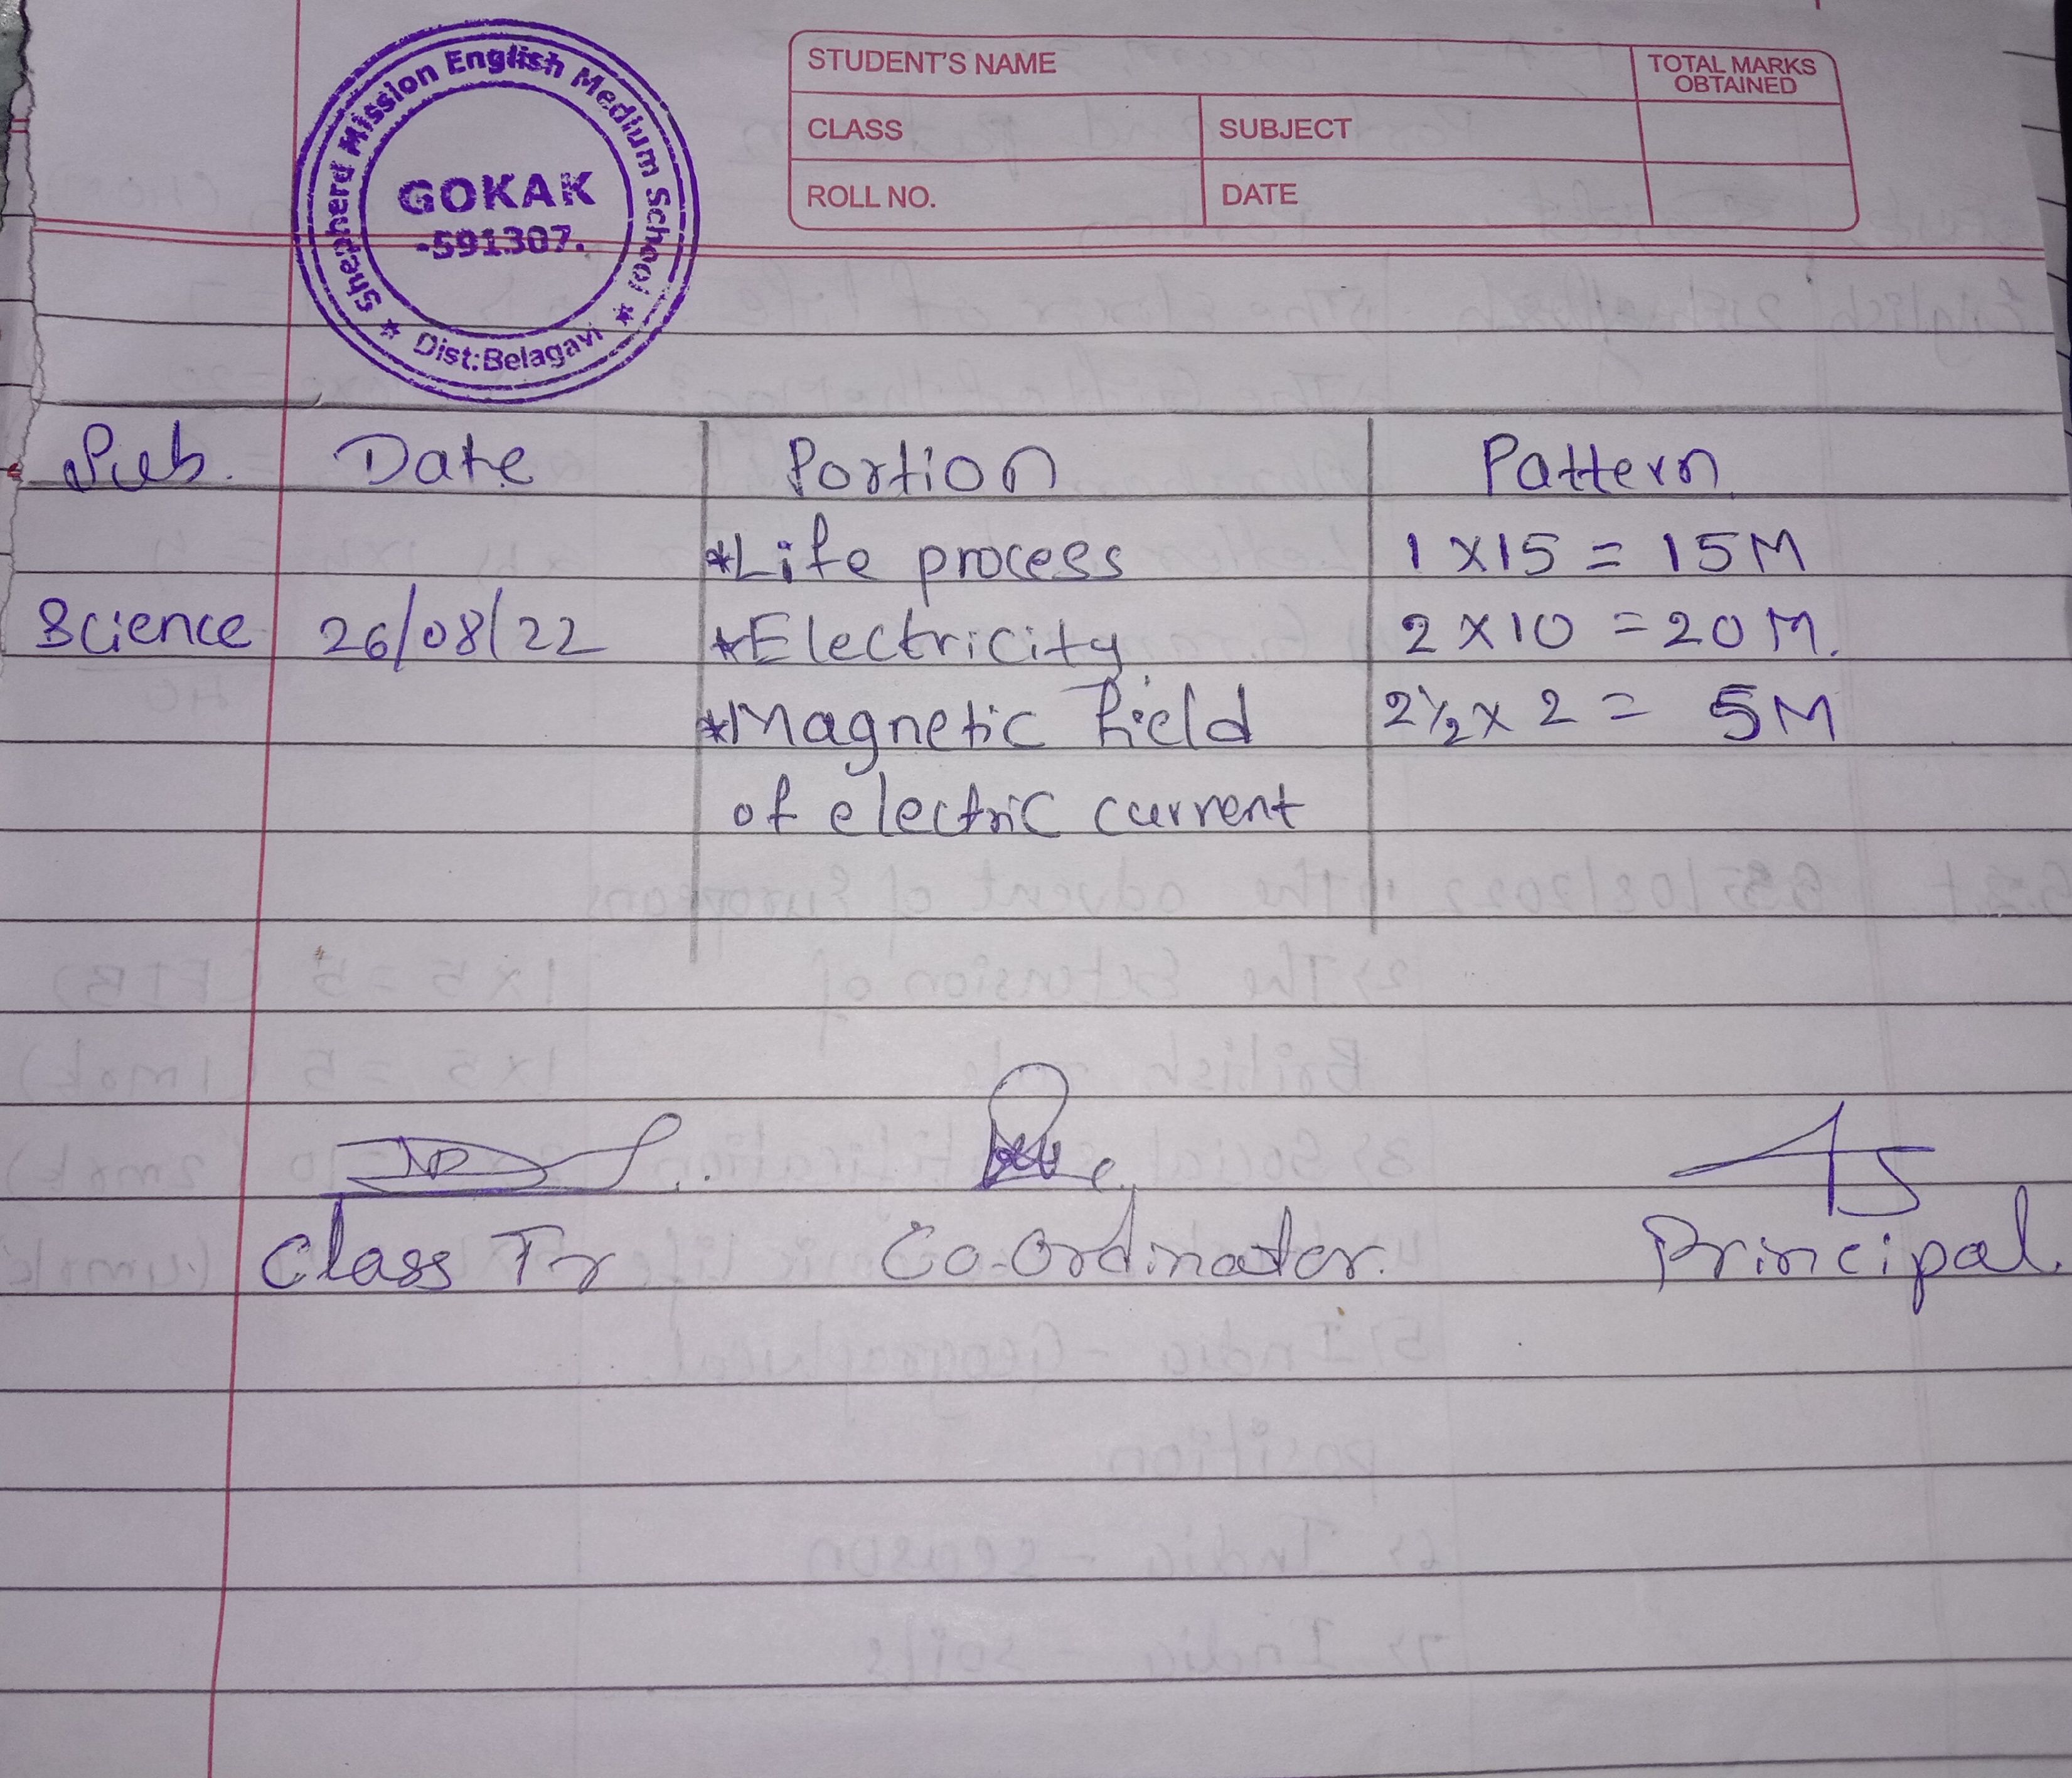 Shepherd Mission English Medium School
GOKAK
-591307.
★ Dist:Belagavi ★
STUDENT'S NAME
TOTAL MARKS OBTAINED
CLASS SUBJECT
ROLL NO. DATE
Sub. Date Portion Pattern
*Life process 1 x 15 = 15M
Science 26/08/22 *Electricity 2 x 10 = 20M.
*Magnetic field 2½ x 2 = 5M
of electric current
Class Tr Co-Ordinator. Principal.